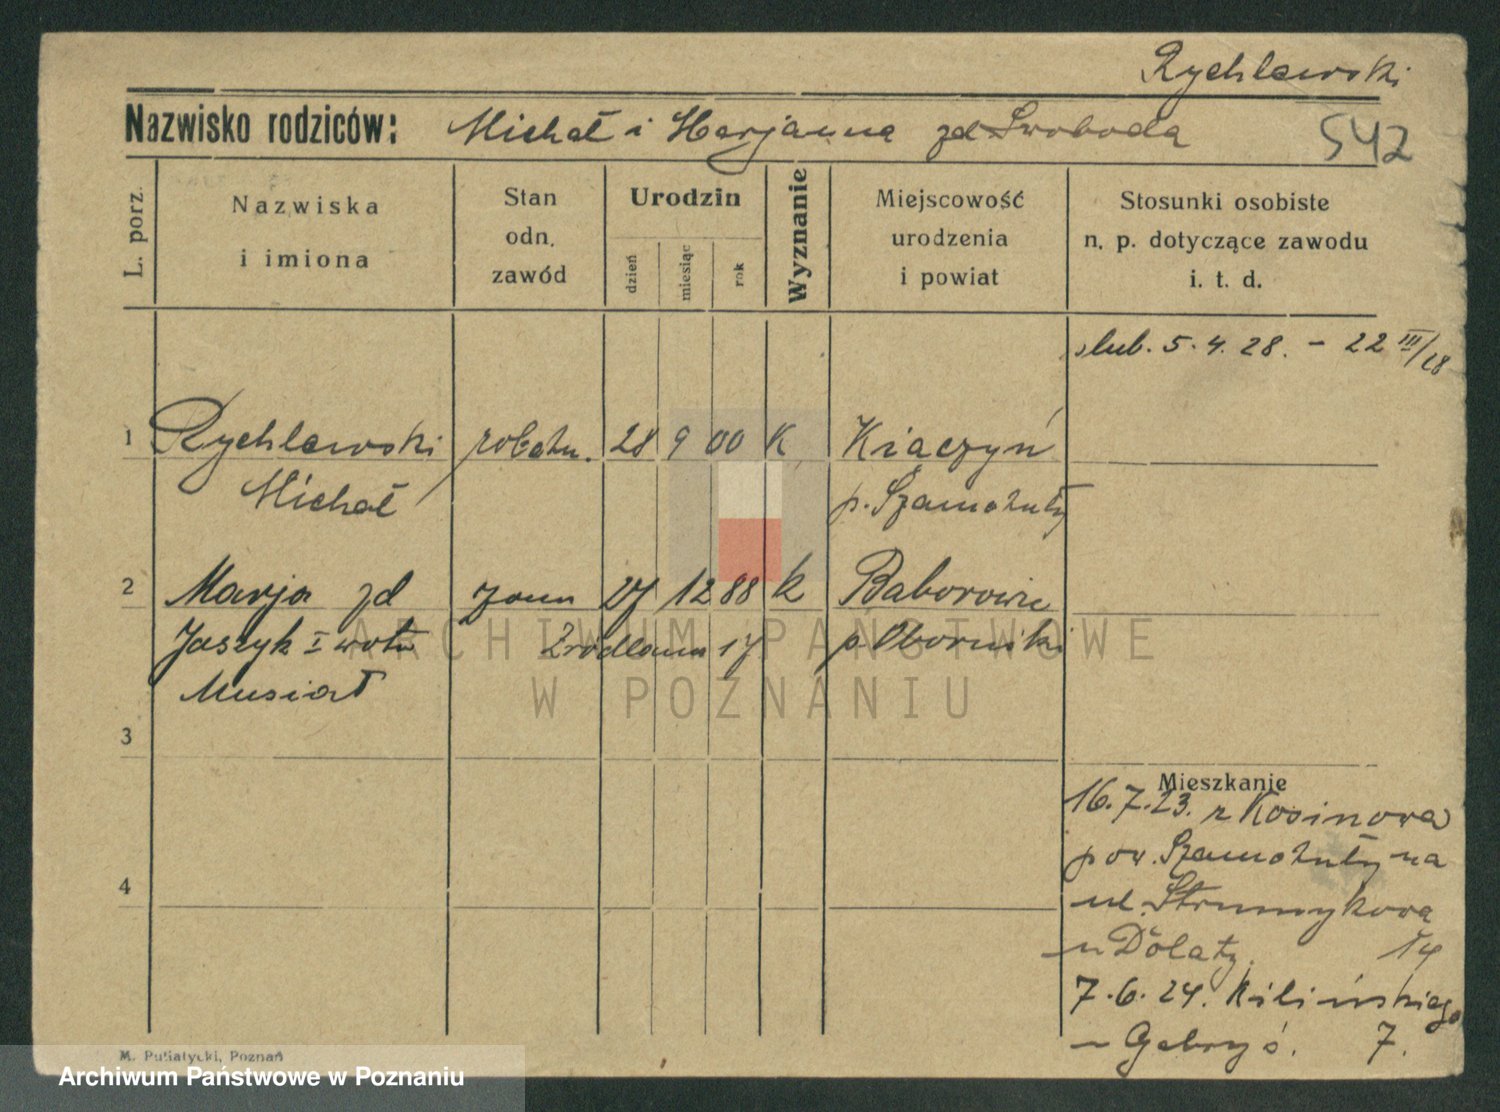 Rychlewski
Nazwisko rodziców: Michał i Marjanna zd Swoboda
542
L. porz.
Nazwiska
i imiona
Stan
odn.
zawód
Urodzin
dzień
miesiąc
rok
Wyznanie
Miejscowość
urodzenia
i powiat
Stosunki osobiste
n. p. dotyczące zawodu
i. t. d.
slub. 5. 4. 28. - 22 III/28
1 Rychlewski robotn. 28 9 00 K Kiączyń
Michał p. Szamotuły
2 Marja zd żona 27 12 88 k Baborowie
Jaszyk I woto Źródlana 17 p. Obornicki
Musiał
3
Mieszkanie
16. 7. 23. z Kosinowa
pow. Szamotuły na
4
ul. Strumykowa
u Dolaty. 14
7. 6. 24. Kilińskiego
u Gabryś. 7.
ARCHIWUM PAŃSTWOWE
W POZNANIU
M. Putiatycki, Poznań
Archiwum Państwowe w Poznaniu